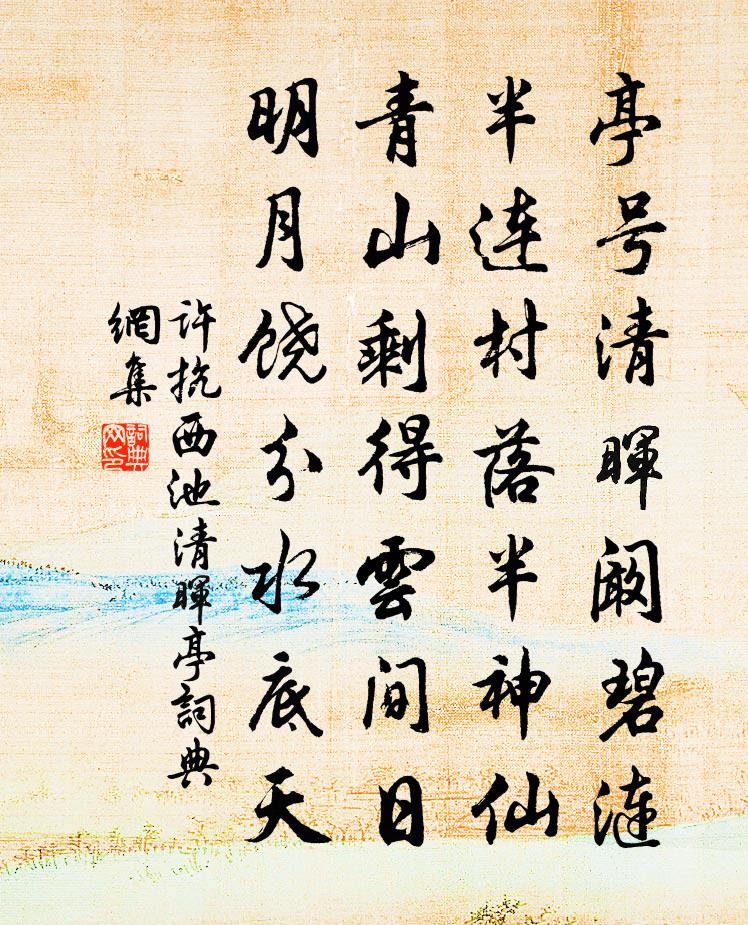 亭号清暉阚碧涟
半连村落半神仙
青山剩得雲间日
明月饶分水底天
许抗西池清暉亭詞典
網集
詞典